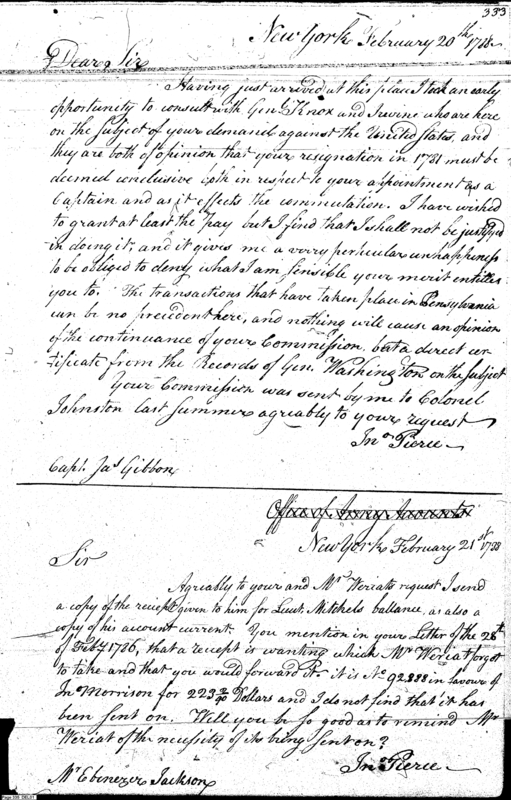 333
New York February 20th 1788
Dear Sir
Having just arrived at this place I took an early
opportunity to consult with Genl. Knox and Irwine who are here
on the subject of your demand against the United States, and
they are both of opinion that your resignation in 1781 must be
deemed conclusive both in respect to your appointment as a
Captain and as it effects the commutation. I have wished
to grant at least the pay but I find that I shall not be justifyed
in doing it, and it gives me a very perticular unhappiness
to be obliged to deny what I am sensible your merit entitles
you to. The transactions that have taken place in Pensylvania
can be no president here, and nothing will cause an opinion
of the continuance of your Commission, but a direct cer
tificate from the Records of Gen. Washington on the subject
Your Commission was sent by me to Colonel
Johnston last summer agreably to your request
Jno Pierce
Capt. Jas Gibbon
Office of Army Accounts
New York February 21st 1788
Sir
Agreably to your and Mr Weriats request I send
a copy of the receipt given to him for Lieut. Mitchels ballance, as also a
copy of his account current. You mention in your Letter of the 28th
of Feby 1786, that a receipt is wanting which Mr Weriat forgot
to take and that you would forward it. it is No 92888 in favour of
Jno Morrison for 223 2/90 Dollars and I do not find that it has
been sent on. Will you be so good as to remind Mr
Weriat of the necessity of its being sent on?
Jno Pierce
Mr Ebenezer Jackson